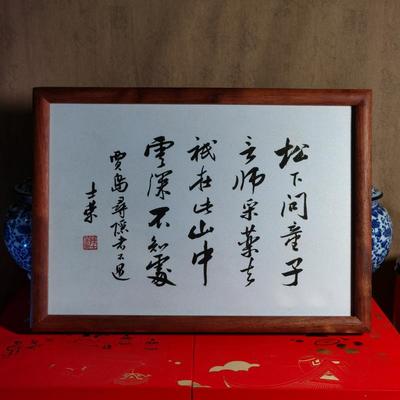 松下问童子
言师采药去
祇在此山中
云深不知处
贾岛寻隐者不遇